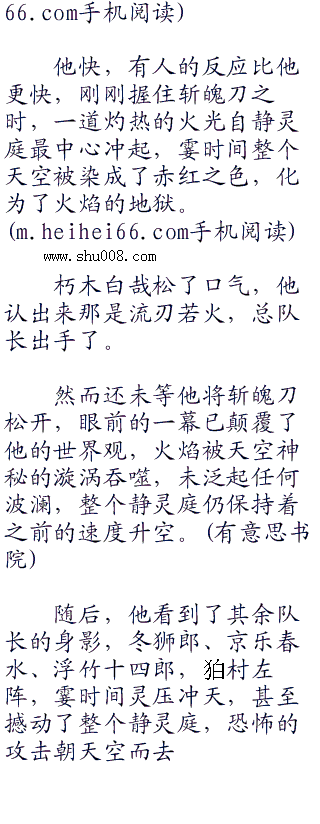 66.com手机阅读)
他快，有人的反应比他
更快，刚刚握住斩魄刀之
时，一道灼热的火光自静灵
庭最中心冲起，霎时间整个
天空被染成了赤红之色，化
为了火焰的地狱。
(m.heihei66.com手机阅读)
www.shu008.com
朽木白哉松了口气，他
认出来那是流刃若火，总队
长出手了。
然而还未等他将斩魄刀
松开，眼前的一幕已颠覆了
他的世界观，火焰被天空神
秘的漩涡吞噬，未泛起任何
波澜，整个静灵庭仍保持着
之前的速度升空。(有意思书
院)
随后，他看到了其余队
长的身影，冬狮郎、京乐春
水、浮竹十四郎，狛村左
阵，霎时间灵压冲天，甚至
撼动了整个静灵庭，恐怖的
攻击朝天空而去